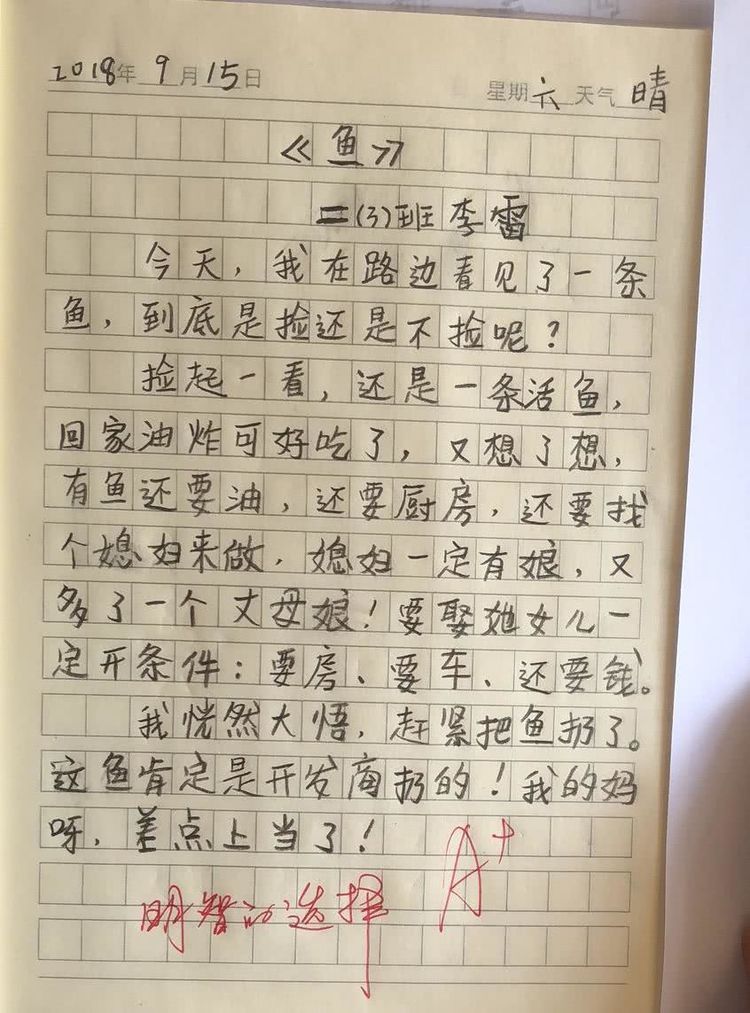 2018年9月15日 星期六 天气 晴
《鱼》
二(3)班李雷
今天,我在路边看见了一条
鱼,到底是捡还是不捡呢?
捡起一看,还是一条活鱼,
回家油炸可好吃了,又想了想,
有鱼还要油,还要厨房,还要找
个媳妇来做.媳妇一定有娘,又
多了一个丈母娘!要娶她女儿一
定开条件:要房、要车、还要钱。
我恍然大悟,赶紧把鱼扔了。
这鱼肯定是开发商扔的!我的妈
呀.差点上当了!
A+
明智的选择